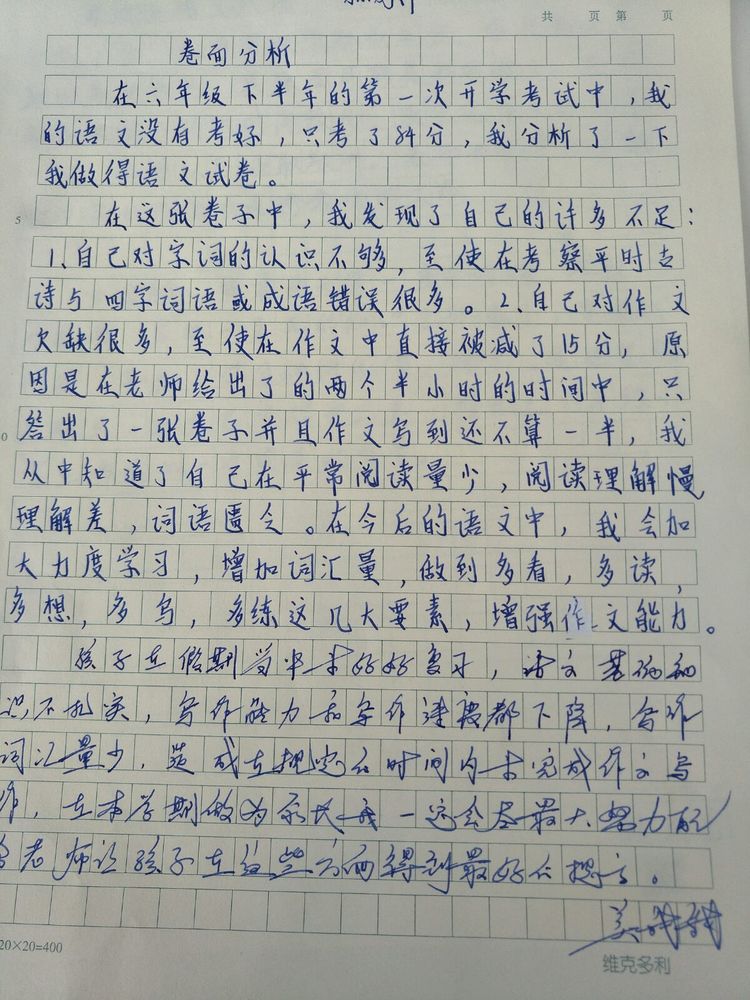 共 页 第 页
卷面分析
在六年级下半年的第一次开学考试中,我
的语文没有考好,只考了84分,我分析了一下
我做得语文试卷。
5
在这张卷子中,我发现了自己的许多不足:
1.自己对字词的认识不够,至使在考察平时古
诗与四字词语或成语错误很多。2.自己对作文
欠缺很多,至使在作文中直接被减了15分,原
因是在老师给出了的两个半小时的时间中,只
答出了一张卷子并且作文写到还不算一半,我
从中知道了自己在平常阅读量少,阅读理解慢
理解差,词语匮乏。在今后的语文中,我会加
大力度学习,增加词汇量,做到多看,多读,
多想,多写,多练这几大要素,增强作文能力。
孩子在假期当中未好好复习,语文基础知
识不扎实,写作能力和写作速度都下降,写作
词汇量少,造成在规定的时间内未完成作文写
作,在本学期做为家长我一定会尽最大努力配
合老师让孩子在这些方面得到最好的提高。
20×20=400
维克多利